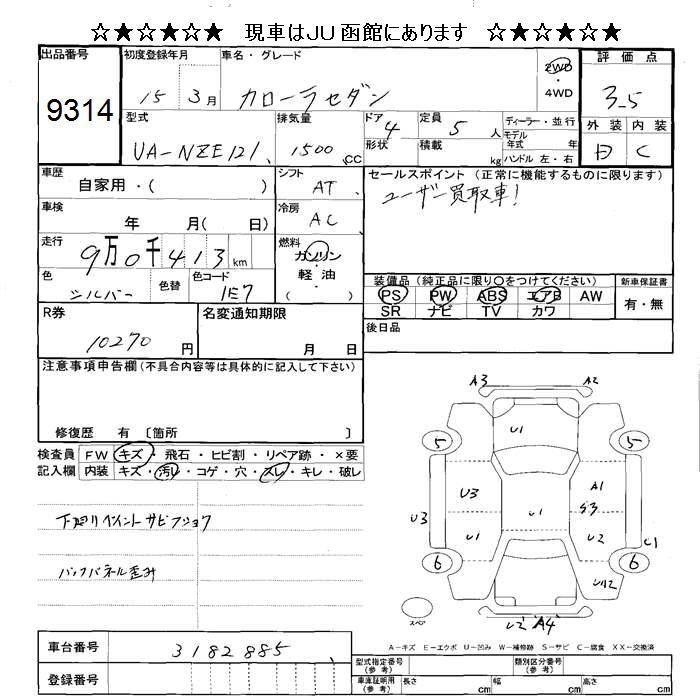 ☆★☆★☆ 現車はJU函館にあります ☆★☆★☆
出品番号 初度登録年月 車名・グレード 2WD 評価点
9314 15 3月 カローラセダン ・4WD 3.5
型式 排気量 ドア 4 定員 5 人 ディーラー・並行 外装 内装
UA-NZE121 1500 CC 形状 積載 kg モデル年式 年 ハンドル 左・右 B C
車歴 自家用・( ) シフト AT セールスポイント (正常に機能するものに限ります)
車検 年 月( 日) 冷房 AC ユーザー買取車!
走行 9万0千413km 燃料 ガソリン
軽・油
( )
色 シルバー 色替 色コード 1E7
装備品 (純正品に限り〇をつけてください) 新車保証書
PS PW ABS エアB AW 有・無
SR ナビ TV カワ
R券 10270 円 名変通知期限 月 日
後日品
注意事項申告欄 (不具合内容等は具体的に記入して下さい)
修復歴 有 〔箇所 〕
検査員 FW キズ・飛石・ヒビ割・リペア跡・×要
記入欄 内装 キズ・汚れ・コゲ・穴・スレ・キレ・破レ
下廻りペイントサビフショク
バックパネル歪み
A3 A2
U1
5 5
U3 A1
U3 S3
U1 U1 U2 C1
6 6
U2 A4
スペア
A-キズ E-エクボ U-凹み W-補修跡 S-サビ C-腐食 XX-交換済
車台番号 3182885
登録番号
型式指定番号 (参考) 類別区分番号 (参考)
車庫証明用 (参考) 長さ cm 幅 cm 高さ cm